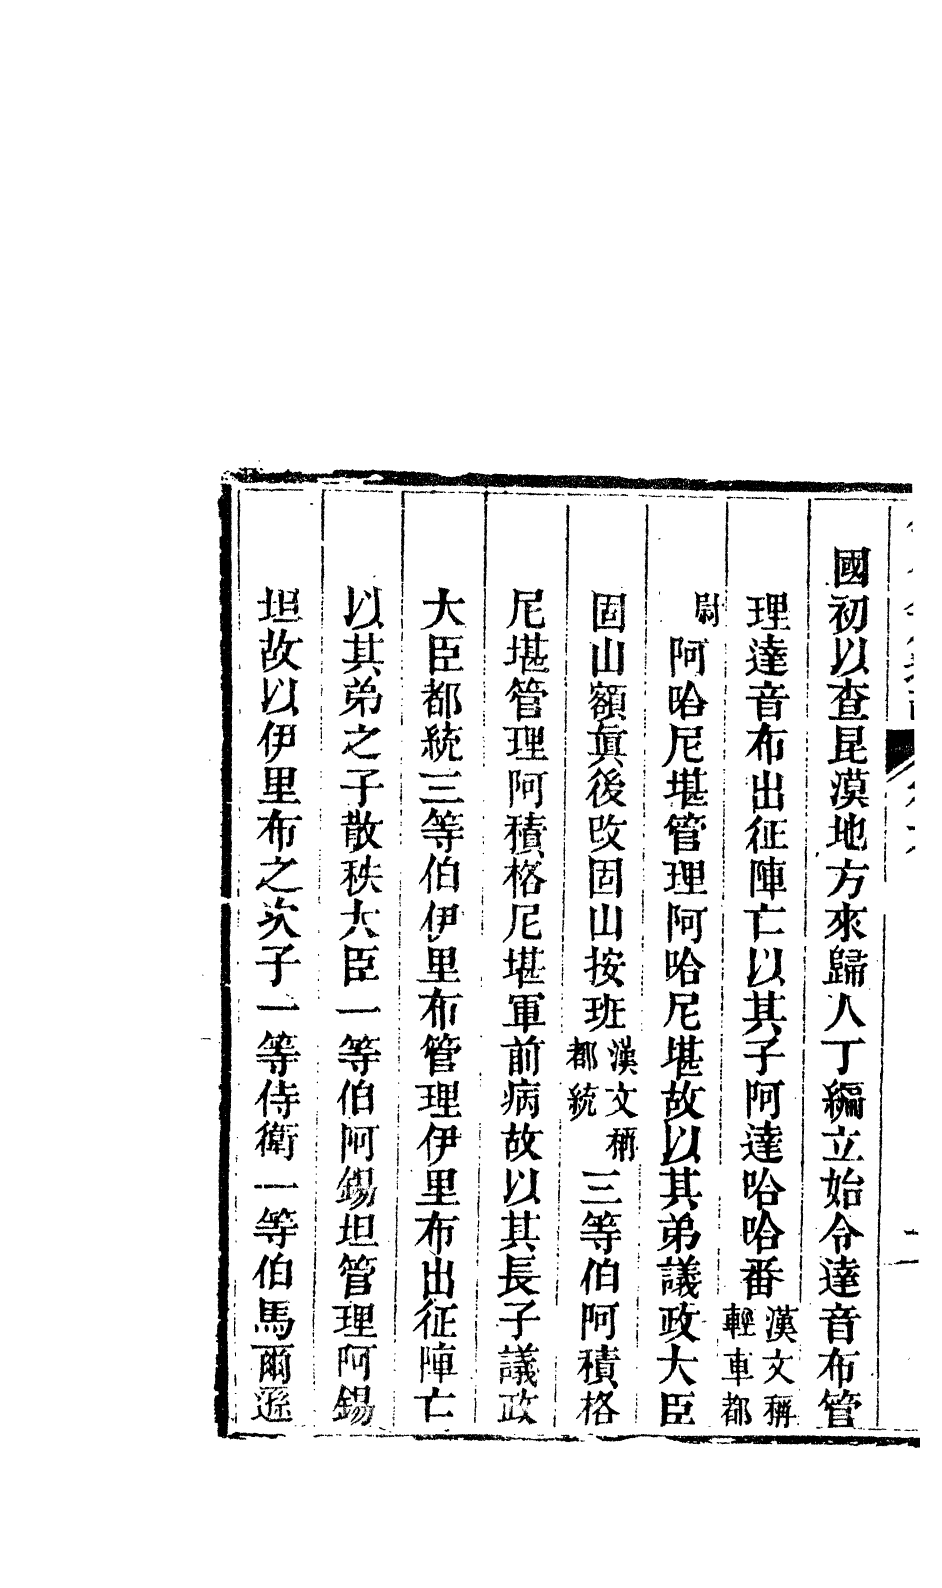 國初以查昆漠地方來歸人丁編立始令達音布管
理達音布出征陣亡以其子阿達哈哈番漢文稱輕車都
尉阿哈尼堪管理阿哈尼堪故以其弟議政大臣
固山額眞後改固山按班漢文稱都統三等伯阿積格
尼堪管理阿積格尼堪軍前病故以其長子議政
大臣都統三等伯伊里布管理伊里布出征陣亡
以其弟之子散秩大臣一等伯阿錫坦管理阿錫
坦故以伊里布之次子一等侍衛一等伯馬爾遜